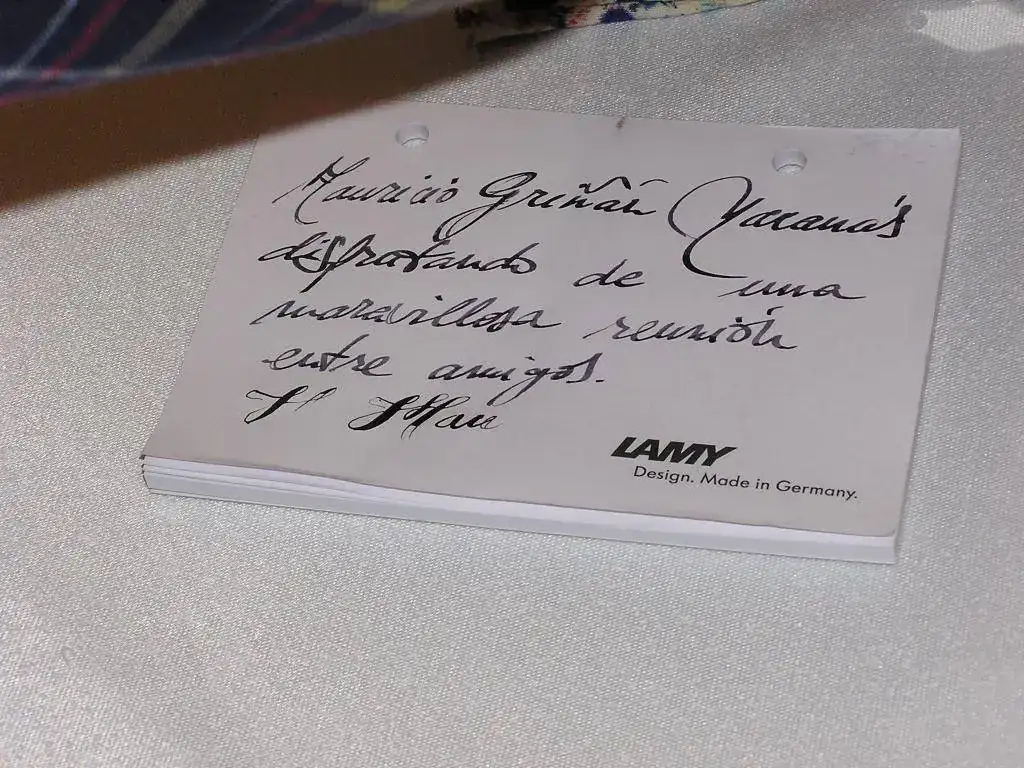 Mauricio Griñán
disfrutando de una
maravillosa reunión
entre amigos.
LAMY
Design. Made in Germany.